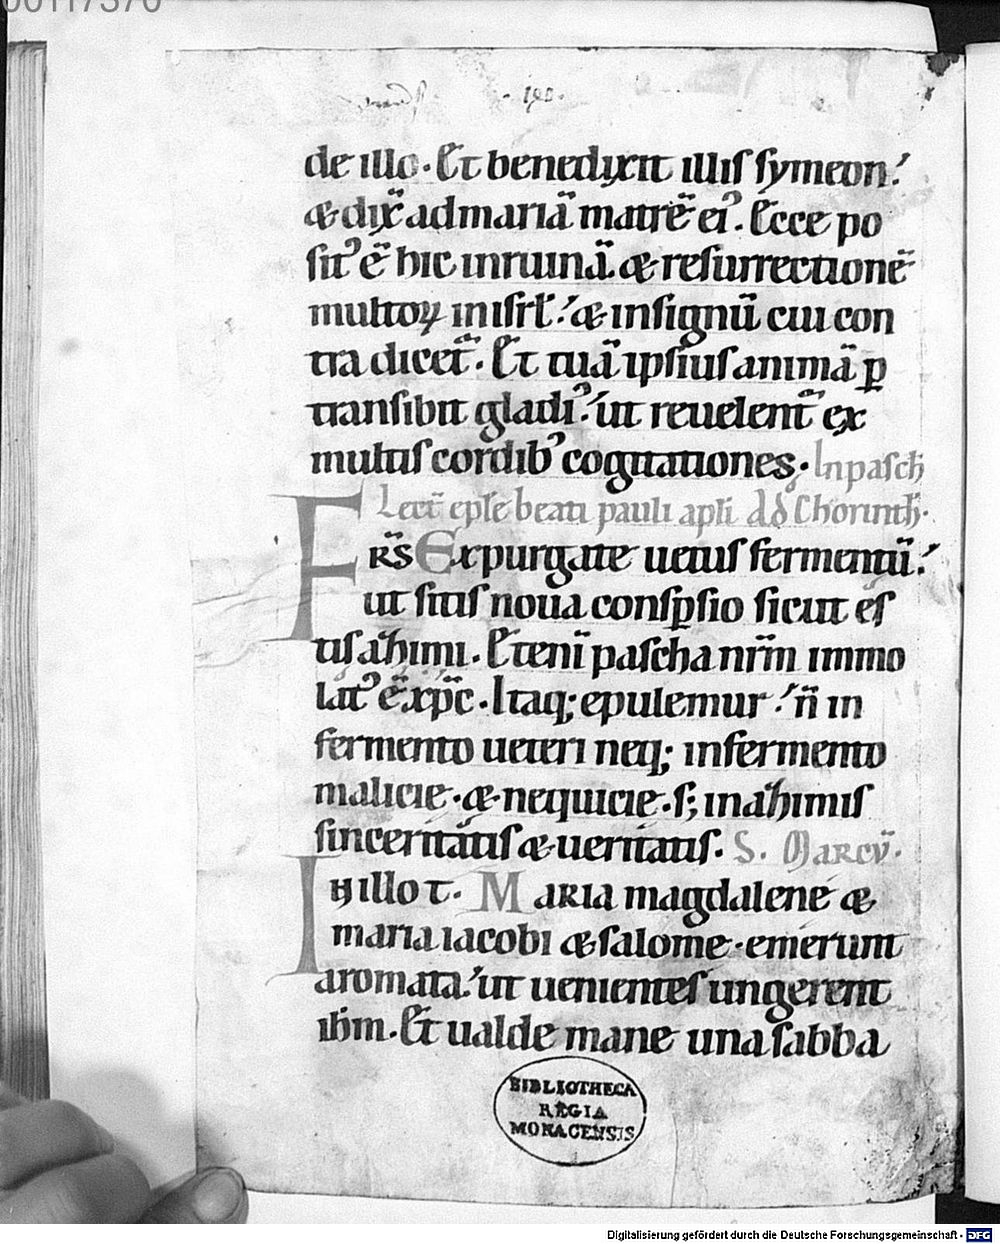 00117370
· 190 ·
de illo · Et benedixit illis symeon:
& dix̄ ad mariā matrē ei᾿. Ecce po
sit᾿ ē hic in ruinā & resurrectionē
multoꝝ in isrł: & in signū cui con
tra dicet̄. Et tuā ipsius animā ꝑ
transibit gladi᾿: ut reuelent̄ ex
multis cordib᾿ cogitationes · In pasch̄
Lect̄ epłe beati pauli apłi Ad Chorinth̄ ·
FRS̄ Expurgate uetus fermentū:
ut sitis noua consꝑsio sicut es
tis azhimi. Etenī pascha nr̄m immo
lat᾿ ē xp̄c. Itaq; epulemur: n̄ in
fermento ueteri neq; in fermento
malicie · & nequicie · s; in azhimis
sinceritatis & ueritatis. S. MARCV̄.
IN illo t. MARIA magdalene &
maria iacobi & salome · emerunt
aromata: ut uenientes ungerent
ih̄m. Et ualde mane una sabba
BIBLIOTHECA
REGIA
MONACENSIS
Digitalisierung gefördert durch die Deutsche Forschungsgemeinschaft - DFG